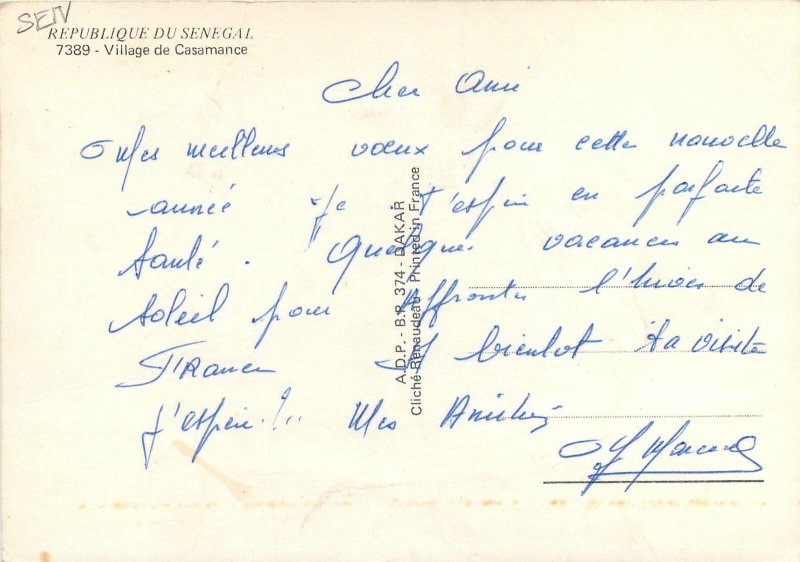 SEN
REPUBLIQUE DU SENEGAL
7389 - Village de Casamance
Cher Ami
Mes meilleurs voeux pour cette nouvelle
année je t'espère en parfaite
santé. Quelques vacances au
soleil pour affronter l'hiver de
France A bientot ta visite
j'espère!.. Mes Amitiés
A.D.P. - B.P. 374 - DAKAR
Cliché Renaudeau - Printed in France